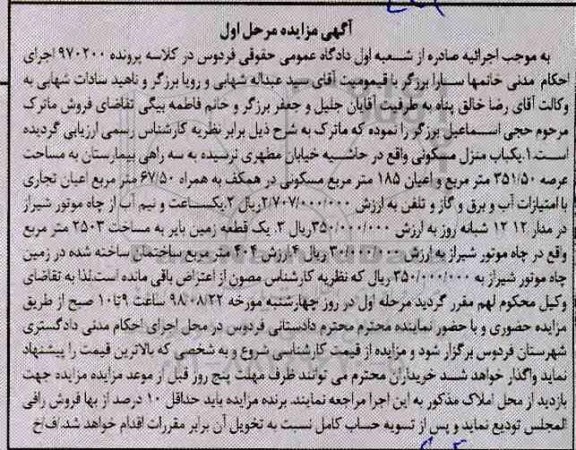 آگهی مزایده مرحل اول
به موجب اجرائیه صادره از شعبه اول دادگاه عمومی حقوقی فردوس در کلاسه پرونده ۹۷۰۲۰۰ اجرای
احکام مدنی خانمها سارا برزگر با قیمومیت آقای سید عبداله شهابی و رویا برزگر و ناهید سادات شهابی به
وکالت آقای رضا خالق پناه به طرفیت آقایان جلیل و جعفر برزگر و خانم فاطمه بیگی تقاضای فروش ماترک
مرحوم حجی اسماعیل برزگر را نموده که ماترک به شرح ذیل برابر نظریه کارشناس رسمی ارزیابی گردیده
است.۱.یکباب منزل مسکونی واقع در حاشیه خیابان مطهری نرسیده به سه راهی بیمارستان به مساحت
عرصه ۳۵۱/۵۰ متر مربع و اعیان ۱۸۵ متر مربع مسکونی در همکف به همراه ۶۷/۵۰ متر مربع اعیان تجاری
با امتیازات آب و برق و گاز و تلفن به ارزش ۲/۷۰۷/۰۰۰/۰۰۰ریال ۲.یکساعت و نیم آب از چاه موتور شیراز
در مدار ۱۲ ۱۲ شبانه روز به ارزش ۳۵۰/۰۰۰/۰۰۰ریال ۳. یک قطعه زمین بایر به مساحت ۲۵۰۳ متر مربع
واقع در چاه موتور شیراز به ارزش ۳۰/۰۰۰/۰۰۰ ریال ۴.ارزش ۴۰۴ متر مربع ساختمان ساخته شده در زمین
چاه موتور شیراز به ۳۵۰/۰۰۰/۰۰۰ ریال که نظریه کارشناس مصون از اعتراض باقی مانده است.لذا به تقاضای
وکیل محکوم لهم مقرر گردید مرحله اول در روز چهارشنبه مورخه ۹۸/۰۸/۲۲ ساعت ۹تا۱۰ صبح از طریق
مزایده حضوری و با حضور نماینده محترم محترم دادستانی فردوس در محل اجرای احکام مدنی دادگستری
شهرستان فردوس برگزار شود و مزایده از قیمت کارشناسی شروع و به شخصی که بالاترین قیمت را پیشنهاد
نماید واگذار خواهد شد خریداران محترم می توانند ظرف مهلت پنج روز قبل از موعد مزایده مزایده جهت
بازدید از محل املاک مذکور به این اجرا مراجعه نمایند. برنده مزایده باید حداقل ۱۰ درصد از بها فروش رافی
المجلس تودیع نماید و پس از تسویه حساب کامل نسبت به تحویل آن برابر مقررات اقدام خواهد شد. اف/خ